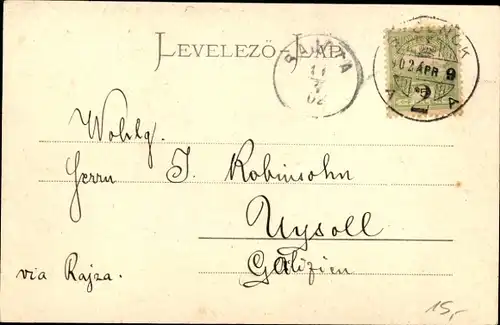 LEVELEZŐ-LAP
RAJCZA
902 APR 9
Wohlg.
Herrn J. Robinsohn
Uysoll
Galizien
via Rajza.
15,-